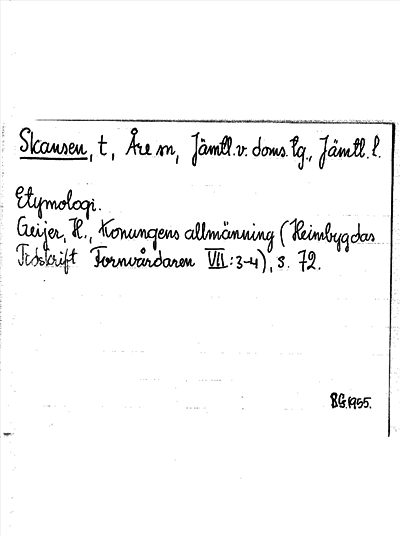 Skansen, t, Åre sn, Jämtl. v. doms. lg., Jämtl. l.
Etymologi.
Geijer, H., Konungens allmänning (Heimbygdas
Tidskrift Fornvårdaren VII:3-4), s. 72.
BG.1955.